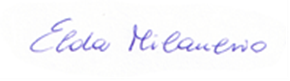 Elda Milanesio